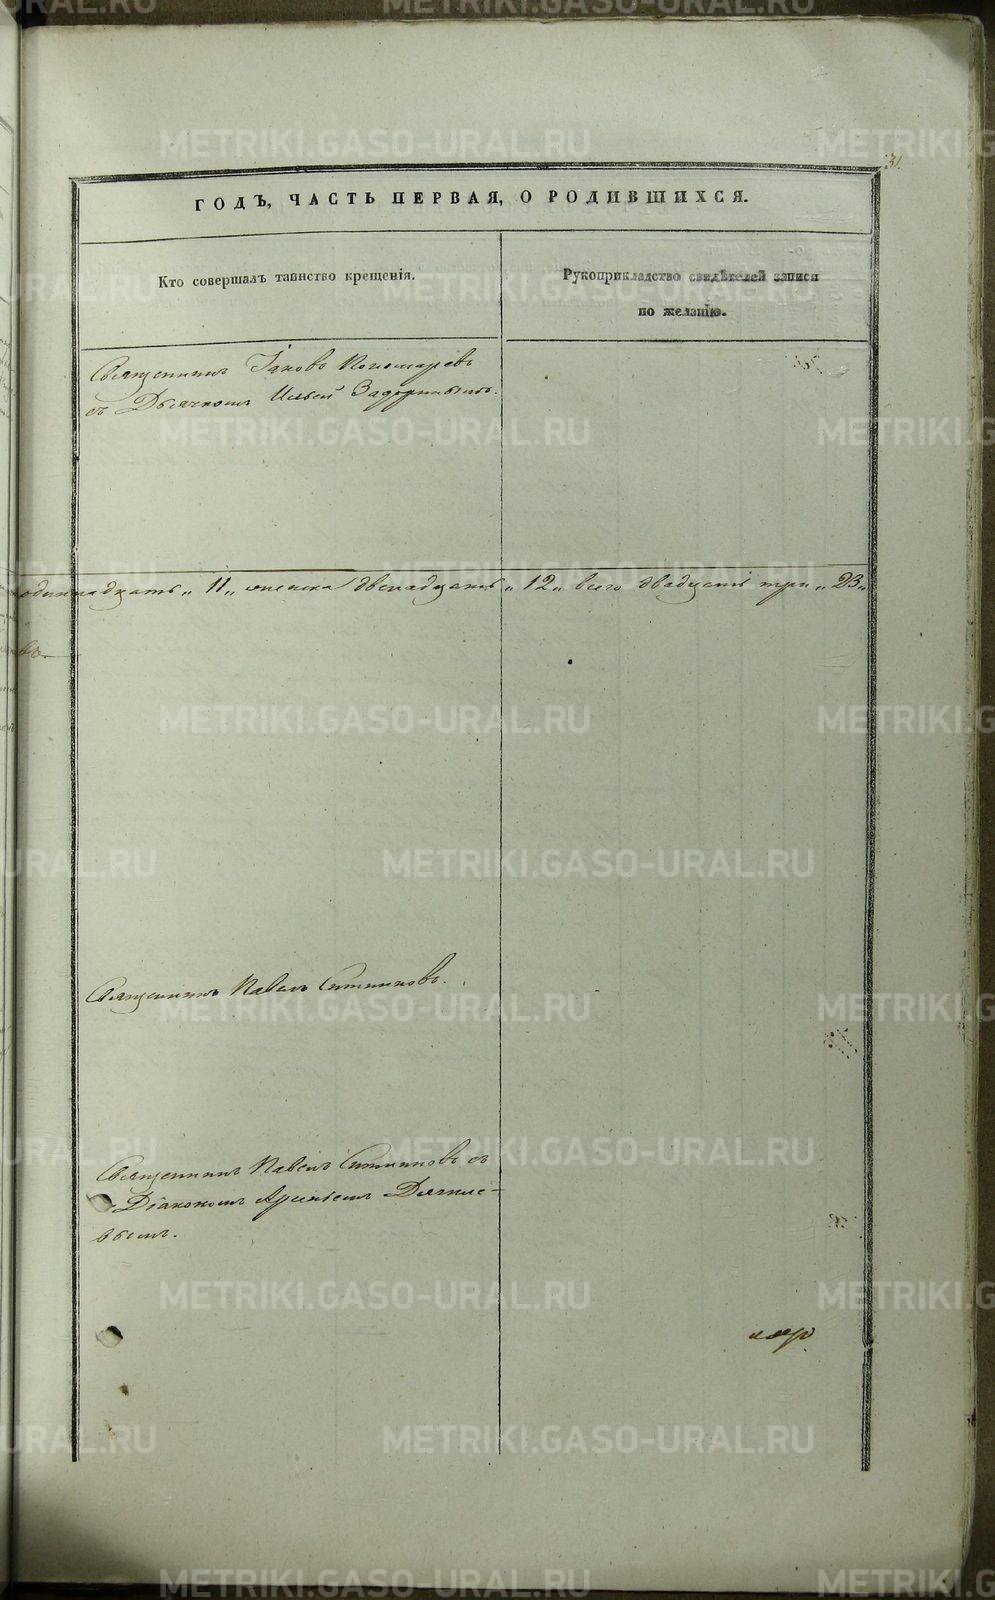 METRIKI.GASO-URAL.RU
31
ГОДЪ, ЧАСТЬ ПЕРВАЯ, О РОДИВШИХСЯ.
Кто совершалъ таинство крещенія.
Рукоприкладство свидѣтелей записи
по желанію.
Священникъ Іаковъ Пономаревъ
съ Дьячкомъ Ильей Задорнымъ.
одиннадцать „ 11 „ женска двенадцать „ 12 „ всего двадцать три „ 23 „
въ.
Священникъ Павелъ Ситниковъ.
Священникъ Павелъ Ситниковъ съ
Діакономъ
вымъ.